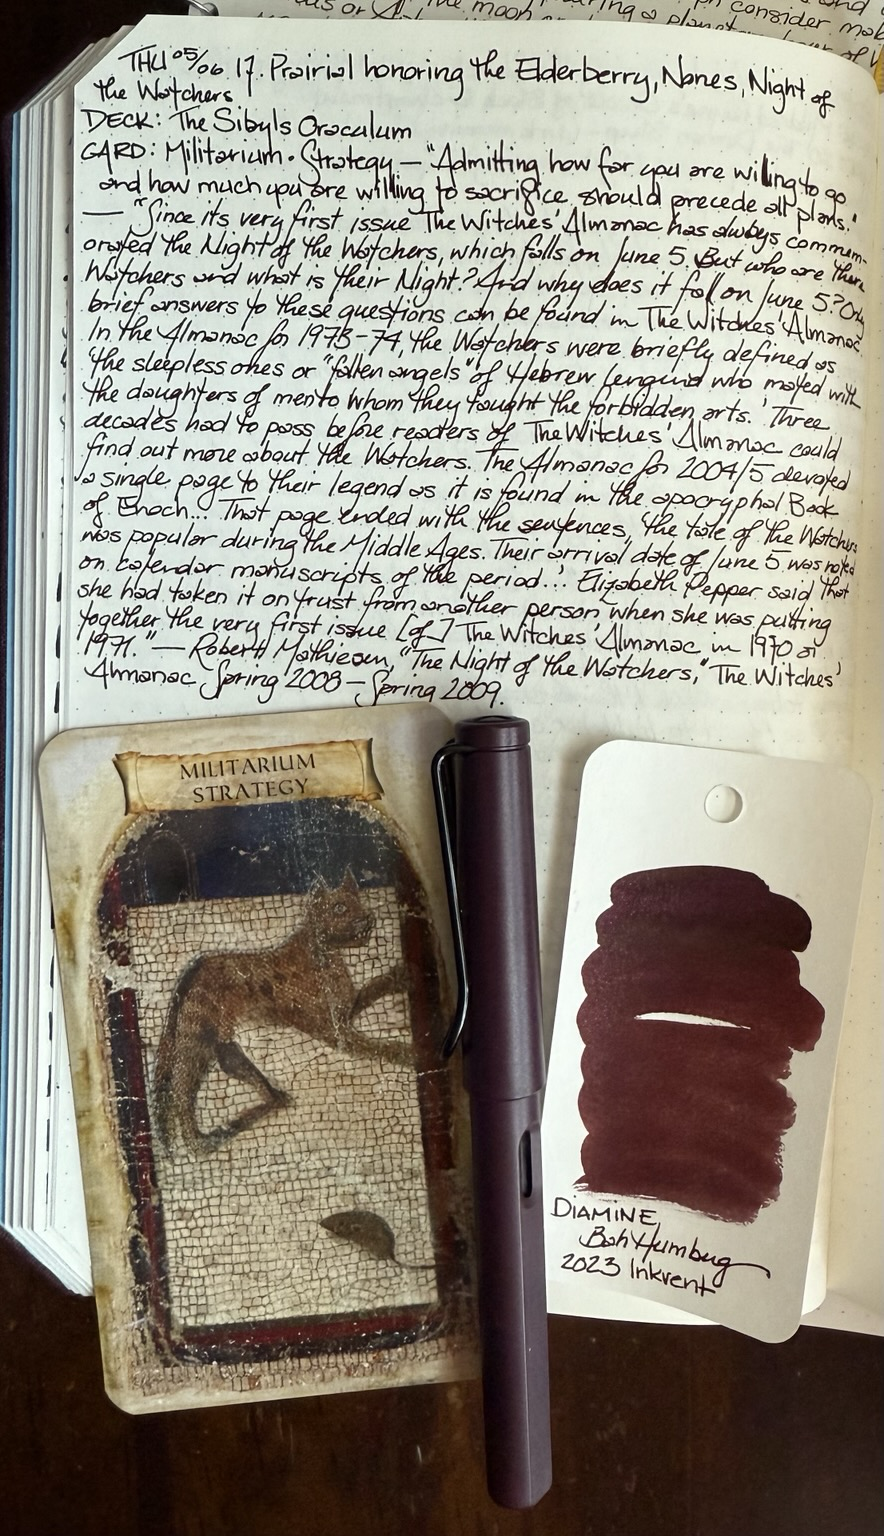 the moon consider
THU 05/06 17. Prairial honoring the Elderberry, Nones, Night of
the Watchers
DECK: The Sibyls Oraculum
CARD: Militarium · Strategy — "Admitting how far you are willing to go
and how much you are willing to sacrifice should precede all plans."
— "Since its very first issue The Witches' Almanac has always commem-
orated the Night of the Watchers, which falls on June 5. But who are these
Watchers and what is their Night? And why does it fall on June 5? Only
brief answers to these questions can be found in The Witches' Almanac.
In the Almanac for 1973-74, the Watchers were briefly defined as
'the sleepless ones or "fallen angels" of Hebrew legend who mated with
the daughters of men to whom they taught the forbidden arts.' Three
decades had to pass before readers of The Witches' Almanac could
find out more about the Watchers. The Almanac for 2004/5 devoted
a single page to their legend as it is found in the apocryphal Book
of Enoch... That page ended with the sentences, 'the tale of the Watchers
was popular during the Middle Ages. Their arrival date of June 5 was noted
on calendar manuscripts of the period...' Elizabeth Pepper said that
she had taken it on trust from another person when she was putting
together the very first issue [of] The Witches' Almanac in 1970 or
1971." — Robert Mathiesen, "The Night of the Watchers," The Witches'
Almanac Spring 2008 – Spring 2009.
MILITARIUM
STRATEGY
DIAMINE
Bah Humbug
2023 Inkvent